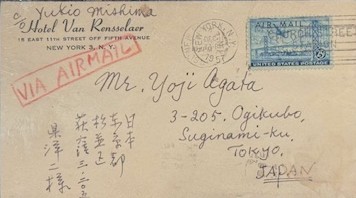 c/o Yukio Mishima
Hotel Van Rensselaer
15 EAST 11TH STREET OFF FIFTH AVENUE
NEW YORK 3, N. Y.
VIA AIRMAIL
AIR MAIL
UNITED STATES POSTAGE
NEW YORK, N.Y.
1957
Mr. Yoji Agata
3-205, Ogikubo,
Suginami-ku,
Tokyo,
JAPAN
日本
東京都
杉並区
荻窪三ノ二〇五
県洋二様